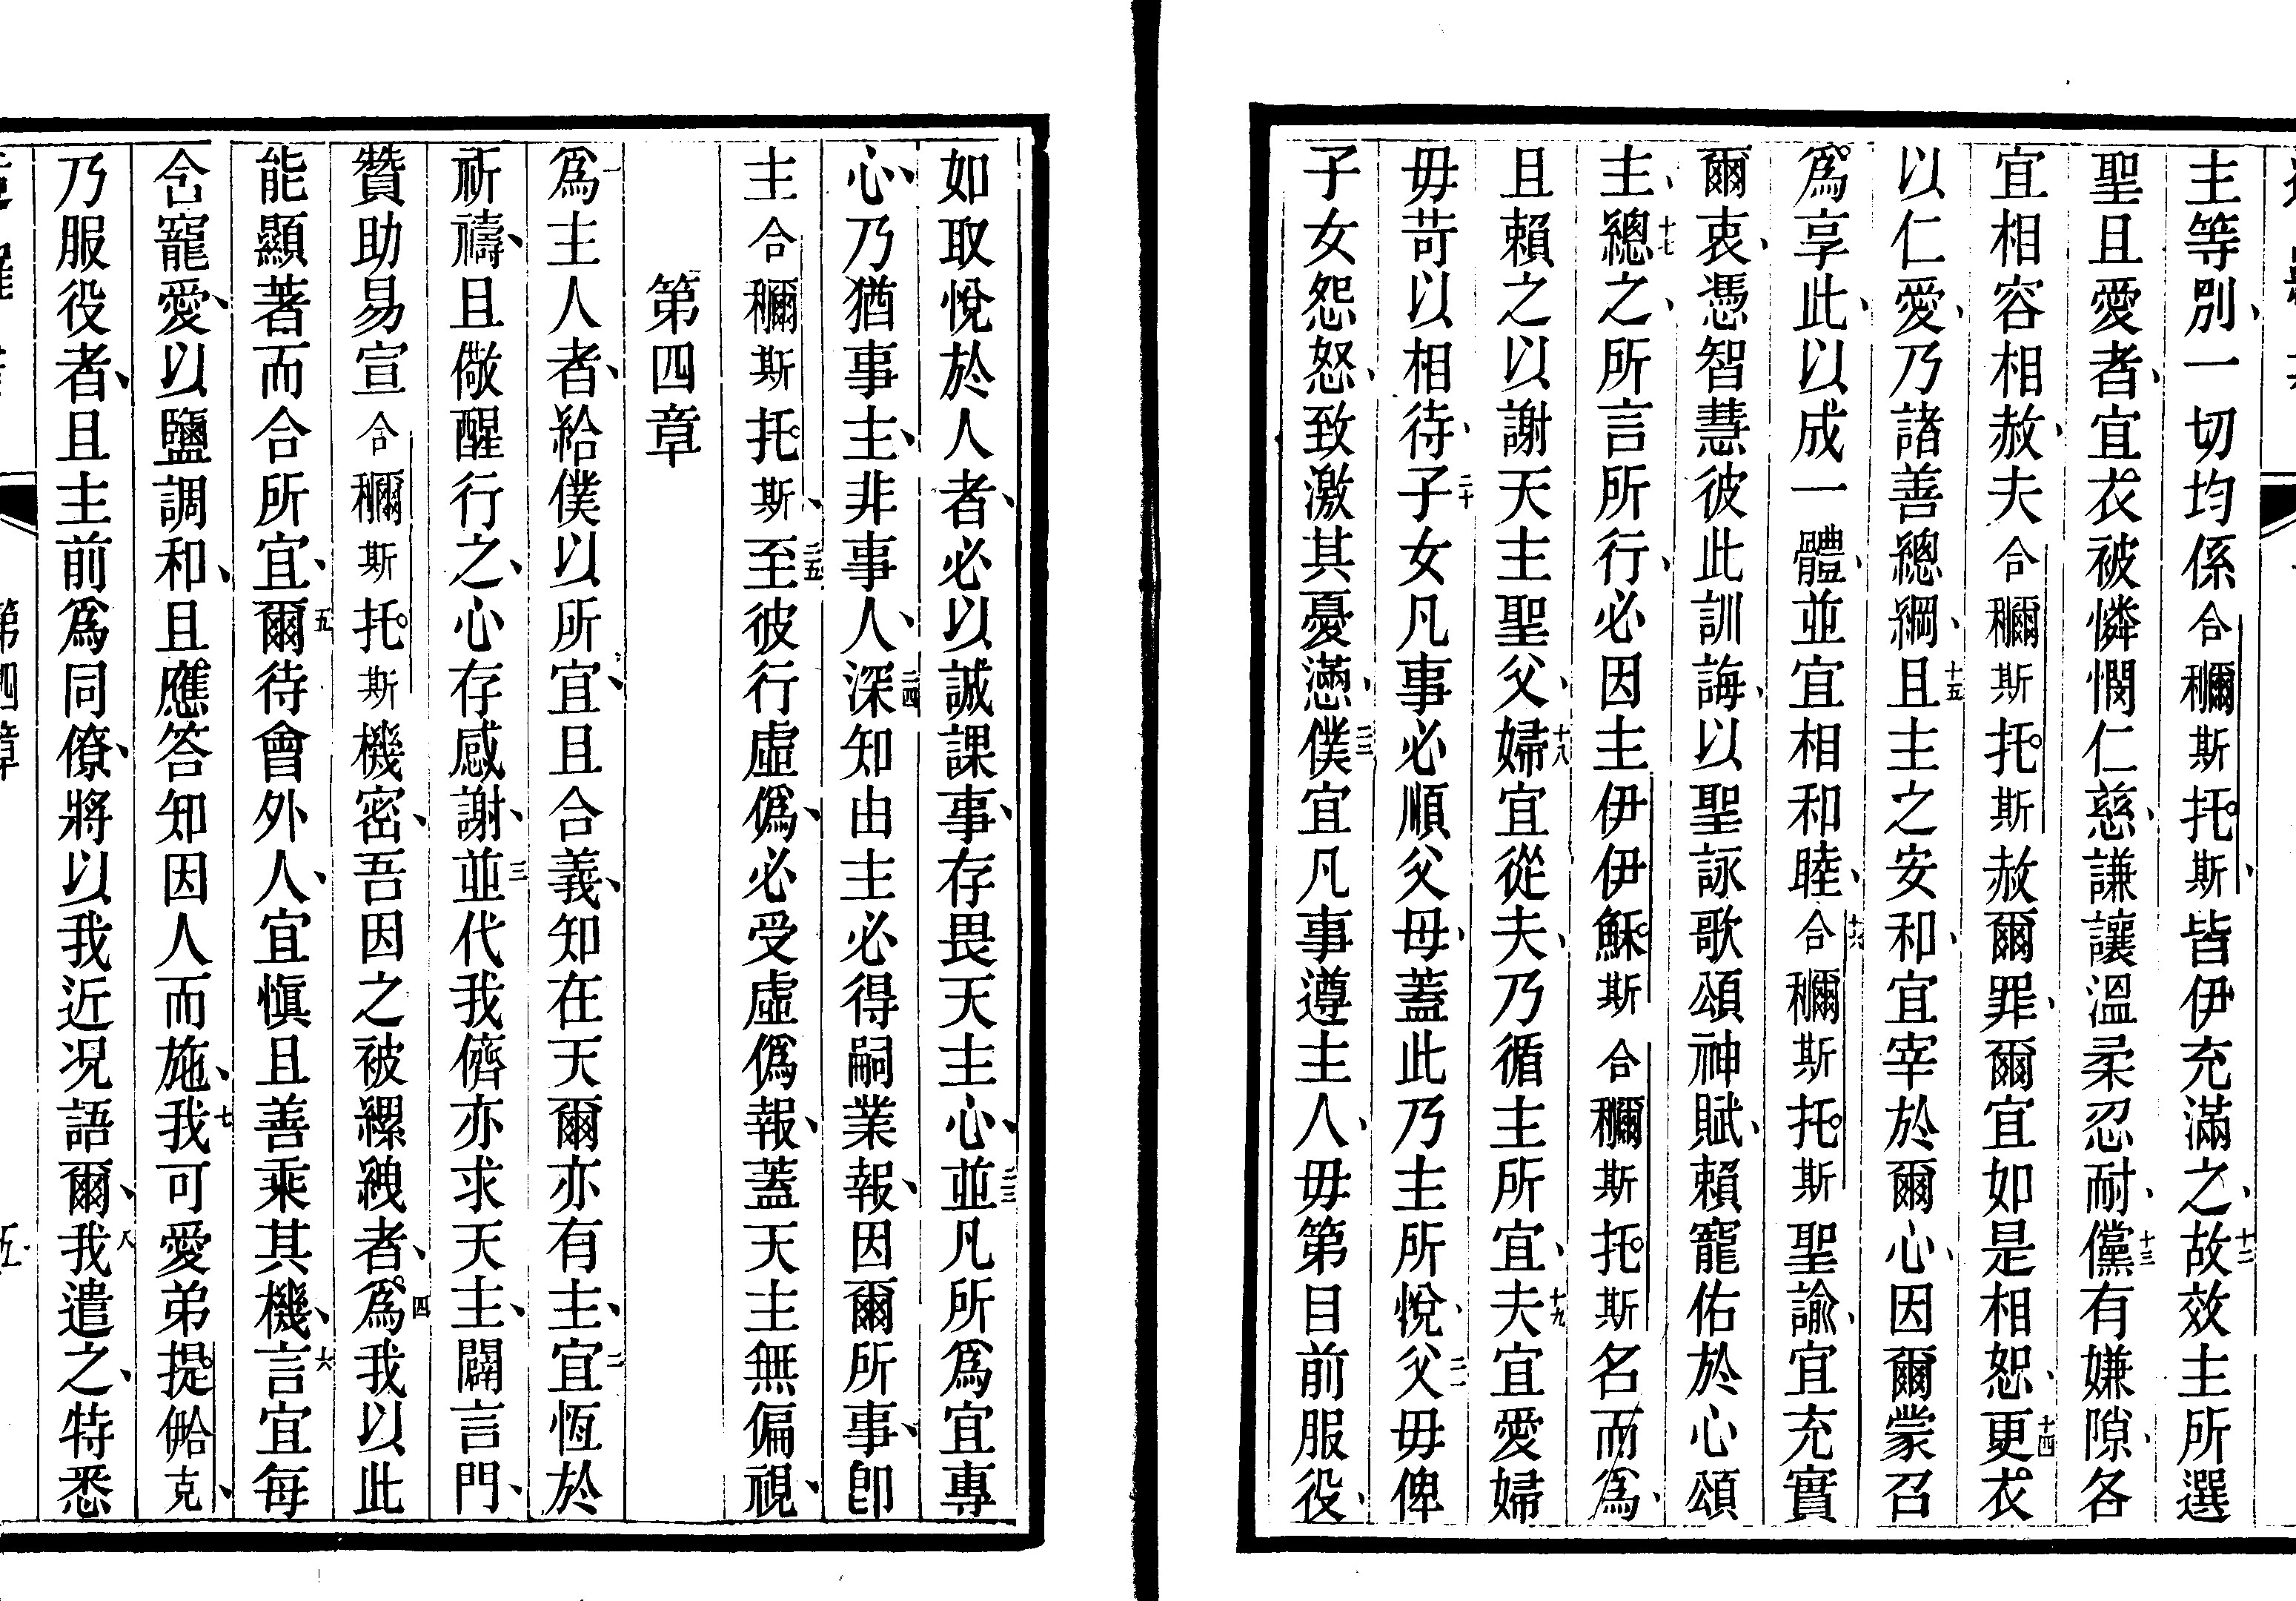 主等別、一切均係合穪斯托斯、皆伊充滿之、十二故效主所選
聖且愛者、宜衣被憐憫仁慈、謙讓溫柔忍耐、十三儻有嫌隙、各
宜相容相赦、夫合穪斯托斯赦爾罪、爾宜如是相恕、十四更衣
以仁愛、乃諸善總綱、十五且主之安和、宜宰於爾心、因爾蒙召
爲享此、以成一體、並宜相和睦、十六合穪斯托斯聖諭、宜充實
爾衷、憑智慧彼此訓誨、以聖詠歌頌神賦、賴寵佑於心頌
主、十七總之、所言所行、必因主伊伊穌斯合穪斯托斯名而爲、
且賴之以謝天主聖父、十八婦宜從夫、乃循主所宜、十九夫宜愛婦
毋苛以相待、二十子女凡事必順父母、蓋此乃主所悅、二一父毋俾
子女怨怒、致激其憂懣、二二僕宜凡事遵主人、毋第目前服役、
如取悅於人者、必以誠課事、存畏天主心、二三並凡所爲宜專
心、乃猶事主、非事人、二四深知由主必得嗣業報、因爾所事、卽
主合穪斯托斯、二五至彼行虛僞、必受虛僞報、蓋天主無偏視、
第四章
一爲主人者、給僕以所宜、且合義、知在天爾亦有主、二宜恆於
祈禱、且儆醒行之、心存感謝、三並代我儕亦求天主、闢言門、
贊助易宣合穪斯托斯機密、吾因之被縲絏者、四爲我以此
能顯著而合所宜、五爾待會外人、宜愼且善乘其機、六言宜每
含寵愛、以鹽調和、且應答知因人而施、七我可愛弟提𠌥克、
乃服役者、且主前爲同僚、將以我近况語爾、八我遣之、特悉
第四章
五